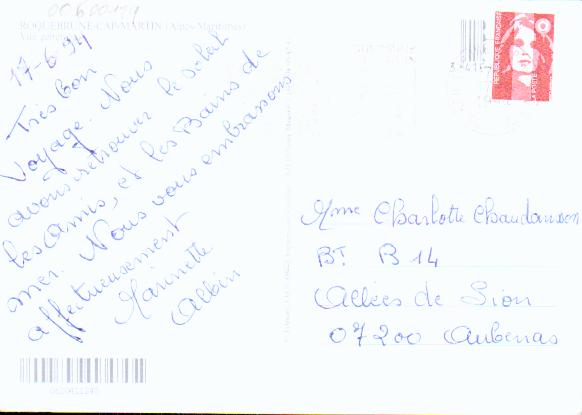 ROQUEBRUNE-CAP-MARTIN (Alpes-Maritimes)
17-6-94
Très bon
Voyage. Nous
avons retrouver le soleil
les Amis, et les Bains de
mer. Nous vous embrassons
affectueusement
Marinette
Albin
RÉPUBLIQUE FRANÇAISE
LA POSTE
Mme Charlotte Chaudanson
BT. B 14
Allées de Sion
07200 Aubenas